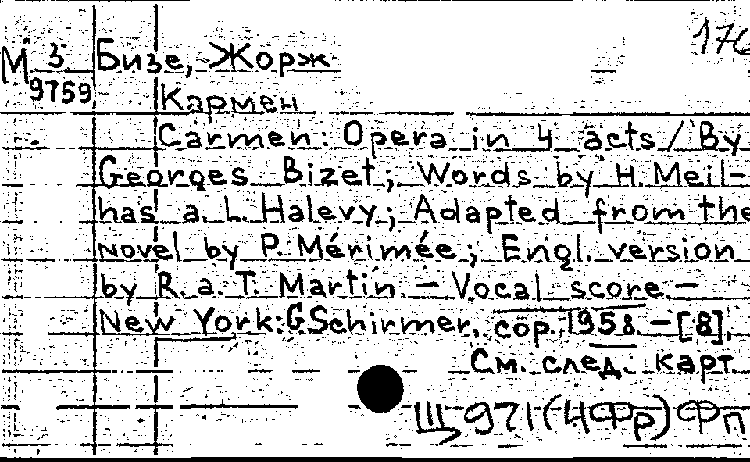 176
М 3 Бизе, Жорж
9759
Кармен
Carmen: Opera in 4 acts / By
Georges Bizet; Words by H. Meil-
has a. L. Halevy; Adapted from the
novel by P. Mérimée; Engl. version
by R. a. T. Martin. — Vocal score. —
New York: G. Schirmer, cop. 1958. — [8],
См. след. карт
Щ 971(4Фр) Фп